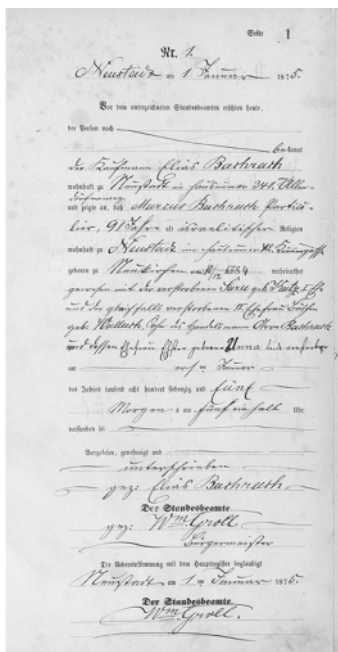 Seite 1
Nr. 1.
Neustadt am 1 Januar 1875.
Vor dem unterzeichneten Standesbeamten erschien heute,
der Person nach
bekannt
der Kaufmann Elias Bachrach
wohnhaft zu Neustadt in Hausnummer 241.
und zeigte an, daß Marcus Bachrach
91 Jahre alt israelitischer Religion
wohnhaft zu Neustadt in Hausnummer
geboren zu Neukirchen am verheirathet
gewesen mit der verstorbenen Sara geb.
und der gleichfalls verstorbenen II Ehefrau
geb. Wallach, Sohn des Handelsmann Bachrach
und dessen Ehefrau geborene Unna
am ersten Januar
des Jahres tausend acht hundert siebenzig und fünf
Morgens um fünf einhalb Uhr
verstorben sei
Vorgelesen, genehmigt und
unterschrieben
gez: Elias Bachrach
Der Standesbeamte
gez: Wm Groll
Bürgermeister
Die Uebereinstimmung mit dem Hauptregister beglaubigt
Neustadt am 1 ten Januar 1875.
Der Standesbeamte.
Wm Groll.